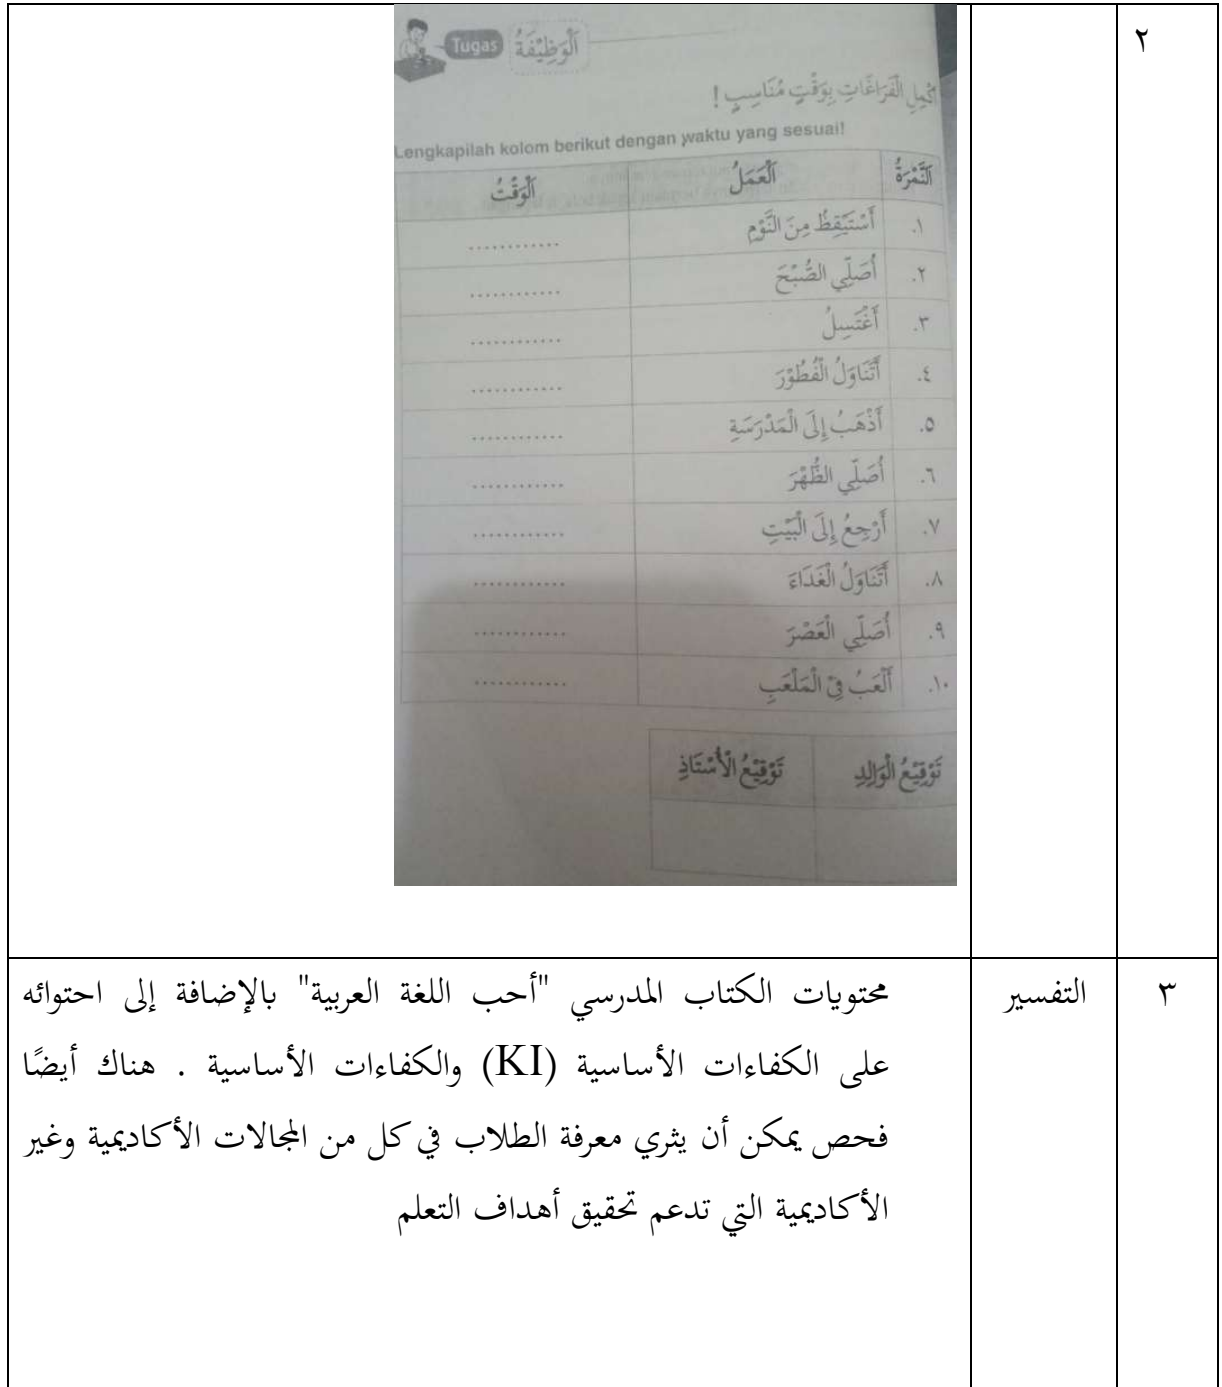 ٢
اَلْوَظِيْفَةُ Tugas
أَكْمِلِ الْفَرَاغَاتِ بِوَقْتٍ مُنَاسِبٍ !
Lengkapilah kolom berikut dengan waktu yang sesuai!
اَلنُّمْرَةُ اَلْعَمَلُ اَلْوَقْتُ
١. أَسْتَيْقِظُ مِنَ النَّوْمِ ............
٢. أُصَلِّي الصُّبْحَ ............
٣. أَغْتَسِلُ ............
٤. أَتَنَاوَلُ الْفُطُوْرَ ............
٥. أَذْهَبُ إِلَى الْمَدْرَسَةِ ............
٦. أُصَلِّي الظُّهْرَ ............
٧. أَرْجِعُ إِلَى الْبَيْتِ ............
٨. أَتَنَاوَلُ الْغَدَاءَ ............
٩. أُصَلِّي الْعَصْرَ ............
١٠. أَلْعَبُ فِيْ الْمَلْعَبِ ............
تَوْقِيْعُ الْوَالِدِ تَوْقِيْعُ الْأُسْتَاذِ
٣ التفسير محتويات الكتاب المدرسي "أحب اللغة العربية" بالإضافة إلى احتوائه
على الكفاءات الأساسية (KI) والكفاءات الأساسية . هناك أيضًا
فحص يمكن أن يثري معرفة الطلاب في كل من المجالات الأكاديمية وغير
الأكاديمية التي تدعم تحقيق أهداف التعلم